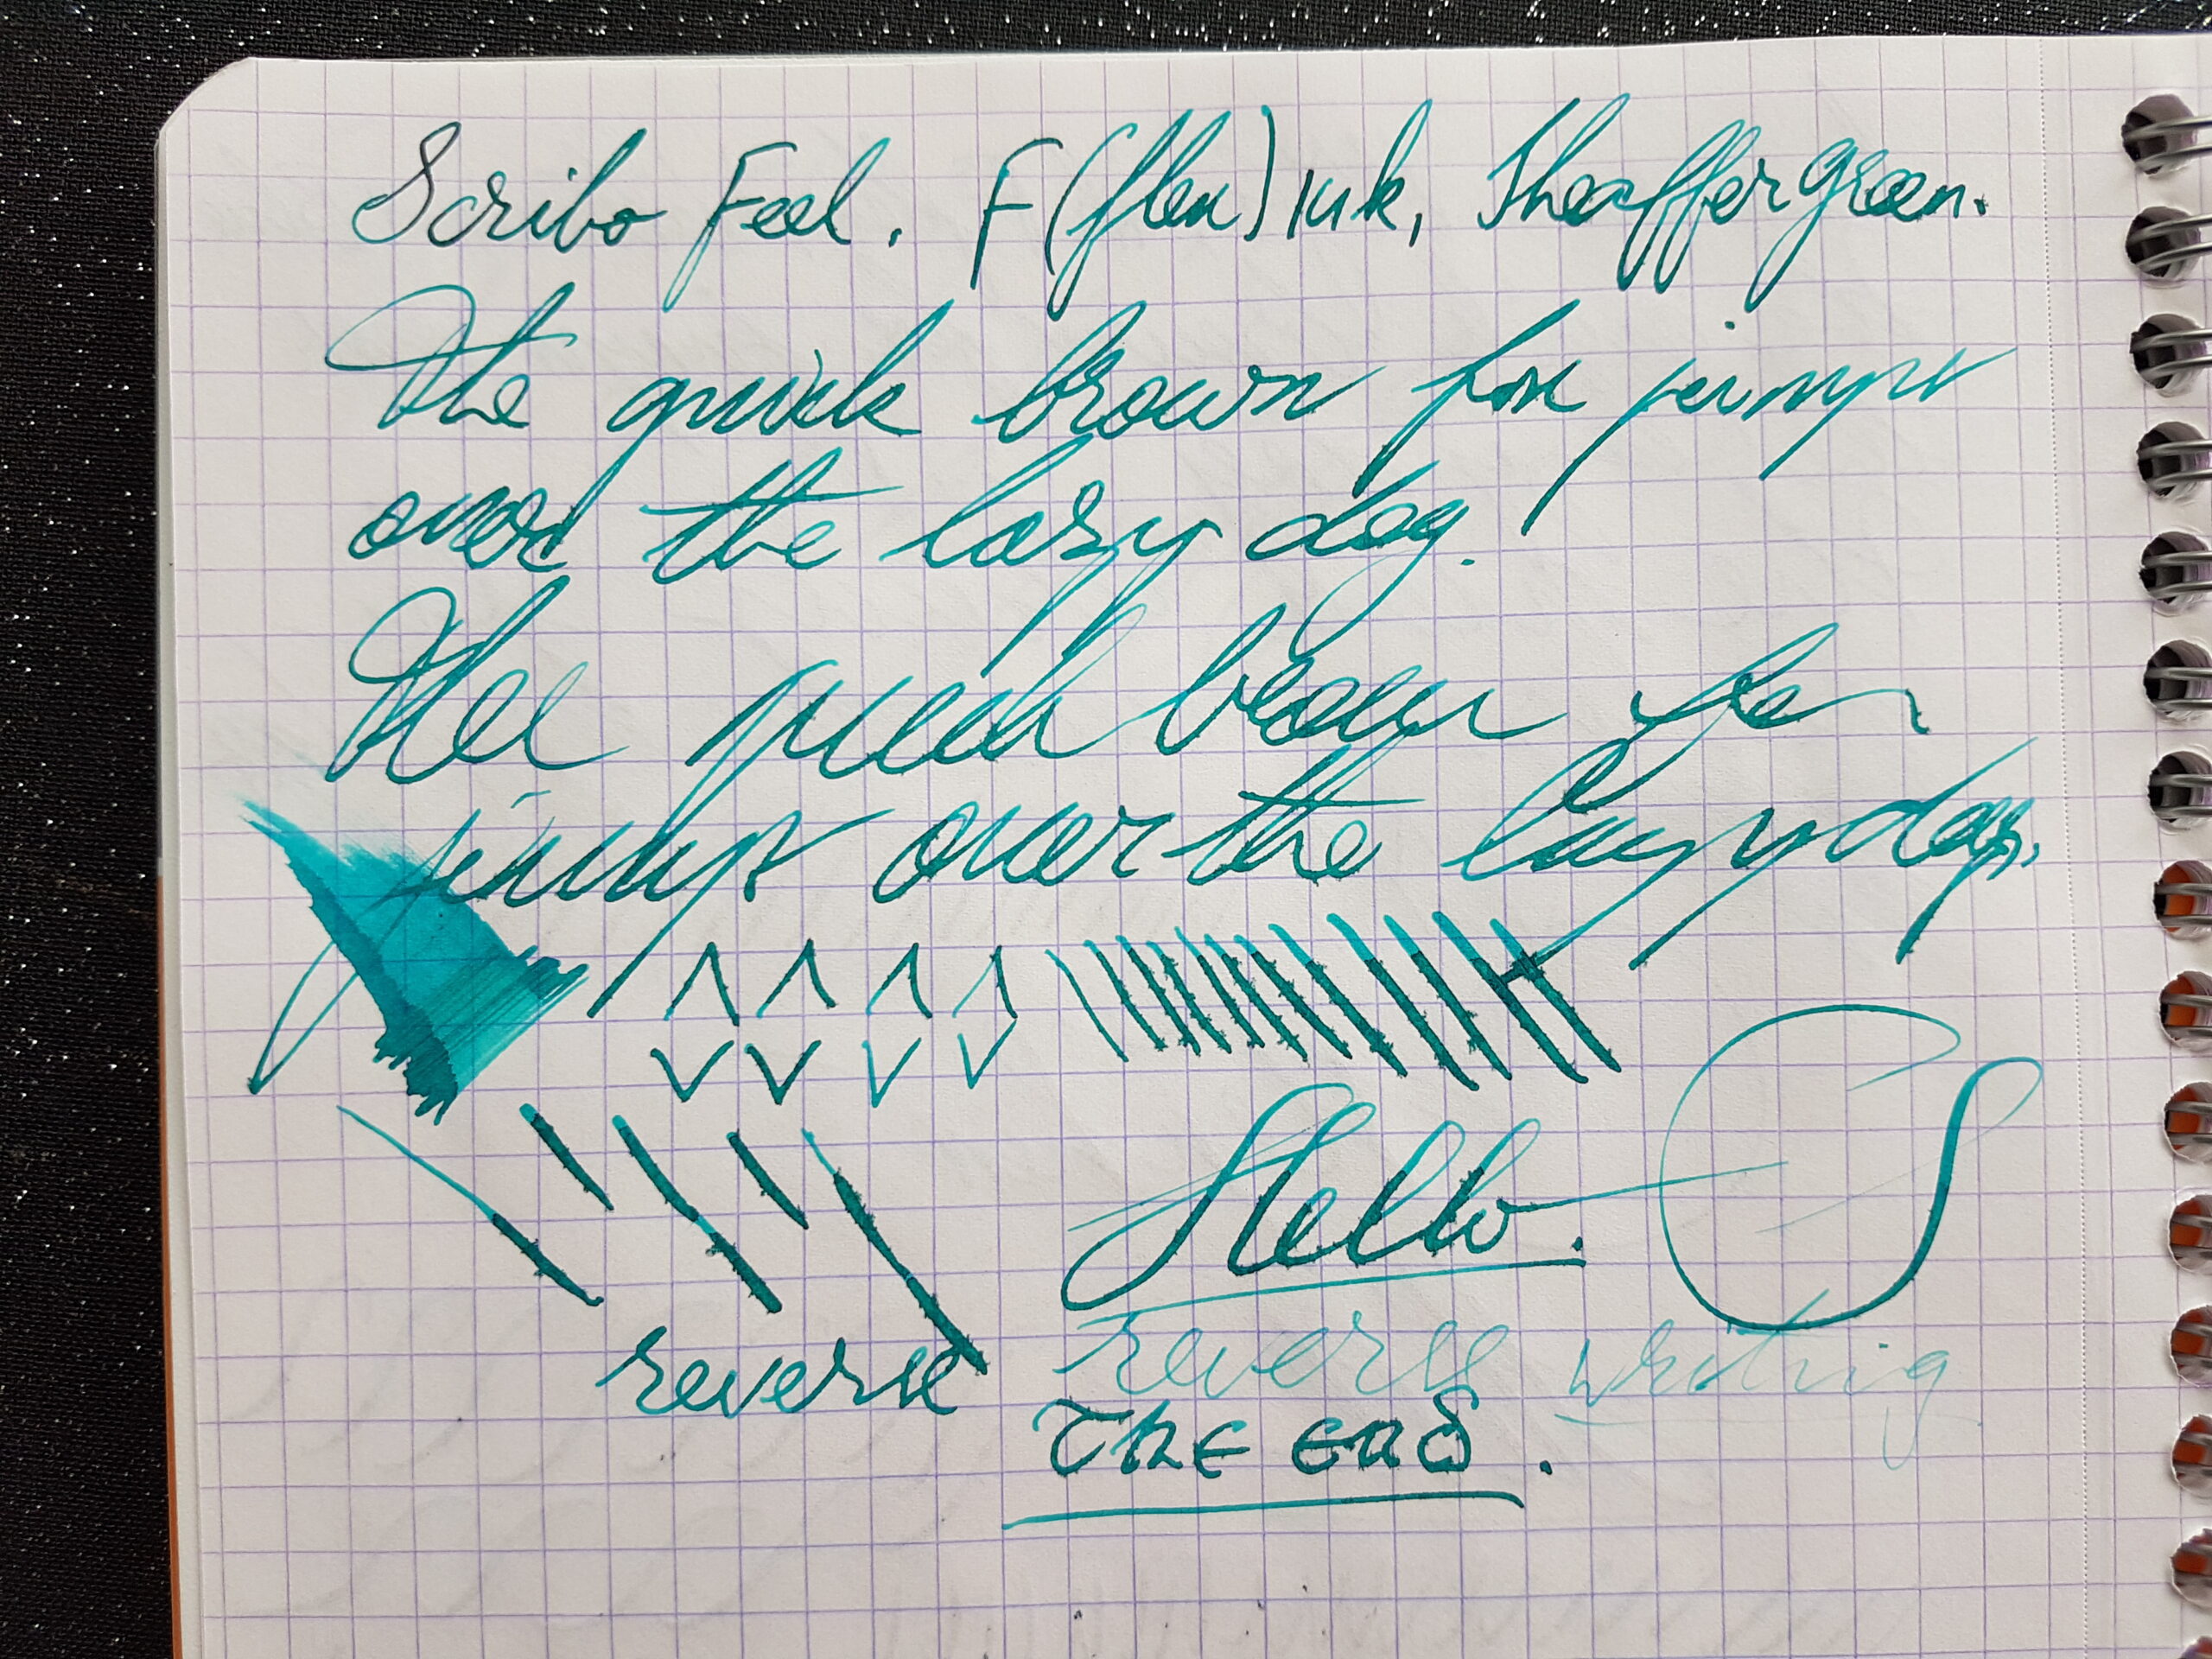 Scribo Feel. F (flex) ink, Sheaffer green.
The quick brown fox jumps
over the lazy dog.
The quick brown fox
jumps over the lazy dog.
Hello.
reverse
reverse writing
The end.